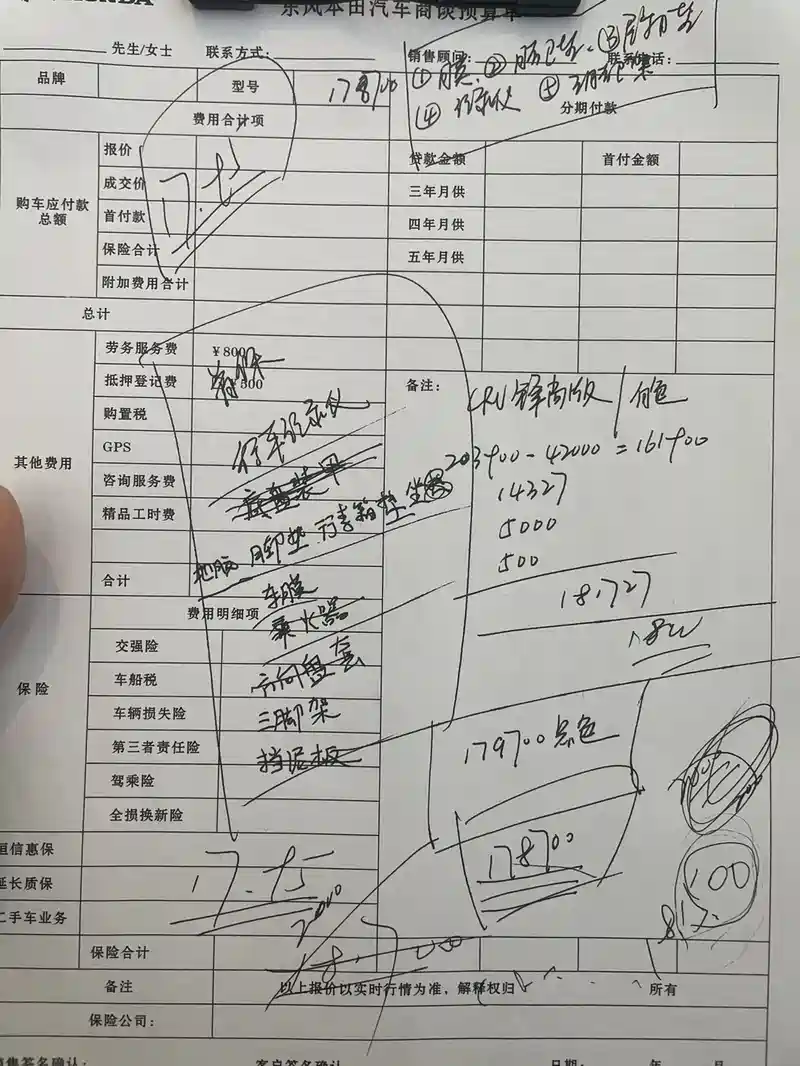 HONDA
东风本田汽车商谈预算单
先生/女士 联系方式: 销售顾问: 联系电话:
① 膜
④
品牌 型号 178700
费用合计项 分期付款
购车应付款总额
报价 贷款金额 首付金额
成交价 三年月供
首付款 四年月供
保险合计 五年月供
附加费用合计
总计
其他费用
劳务服务费 ¥800
抵押登记费 500
备注:
CRV锋尚版/白色
购置税
行车记录仪
203900-42000=161900
GPS
14327
咨询服务费 底盘装甲
5000
精品工时费
500
地胶 脚垫 行李箱垫
合计
车膜
181727
费用明细项
灭火器
保险
交强险
车船税 方向盘套
车辆损失险 三脚架
第三者责任险 挡泥板
179700黑色
驾乘险
全损换新险
178700
恒信惠保
延长质保
100
二手车业务
保险合计
备注 以上报价以实时行情为准,解释权归 所有
保险公司:
销售签名确认: 客户签名确认 日期: 年 月